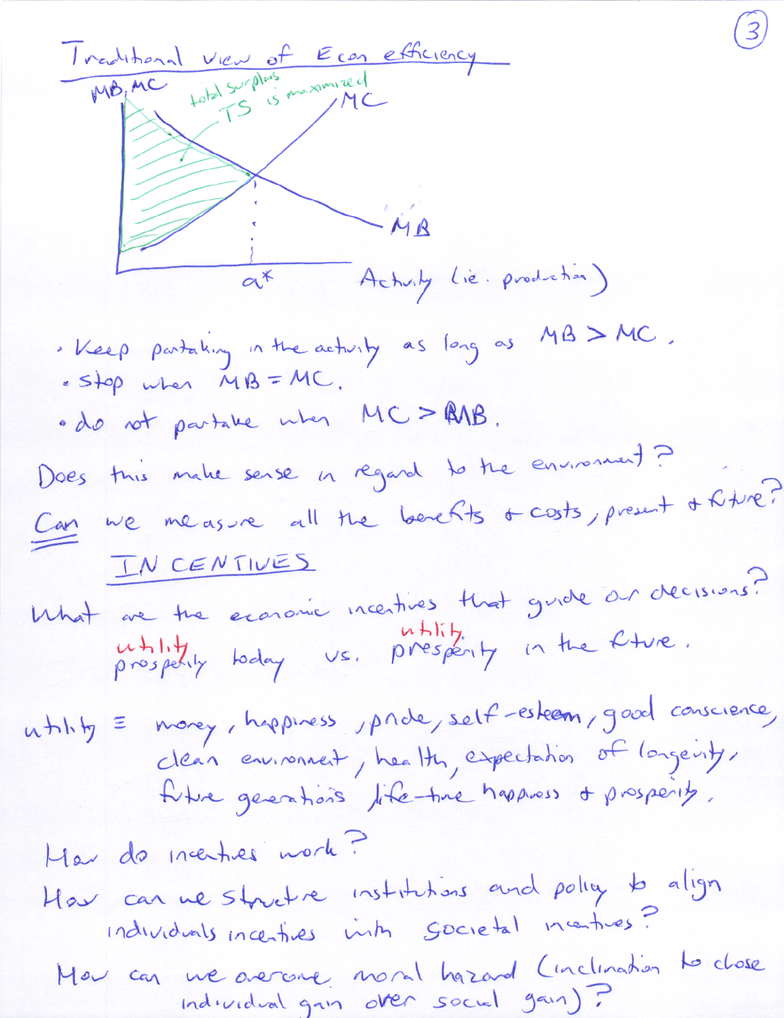 3
Traditional view of Econ efficiency
MB, MC
total surplus
TS is maximized
MC
MB
a*
Activity (ie. production)
• Keep partaking in the activity as long as MB > MC.
• stop when MB = MC.
• do not partake when MC > MB.
Does this make sense in regard to the environment?
Can we measure all the benefits & costs, present & future?
INCENTIVES
What are the economic incentives that guide our decisions?
utility utility
prosperity today vs. prosperity in the future.
utility ≡ money, happiness, pride, self-esteem, good conscience,
clean environment, health, expectation of longevity,
future generations life-time happiness & prosperity.
How do incentives work?
How can we structure institutions and policy to align
individuals incentives with societal incentives?
How can we overcome moral hazard (inclination to close
individual gain over social gain)?